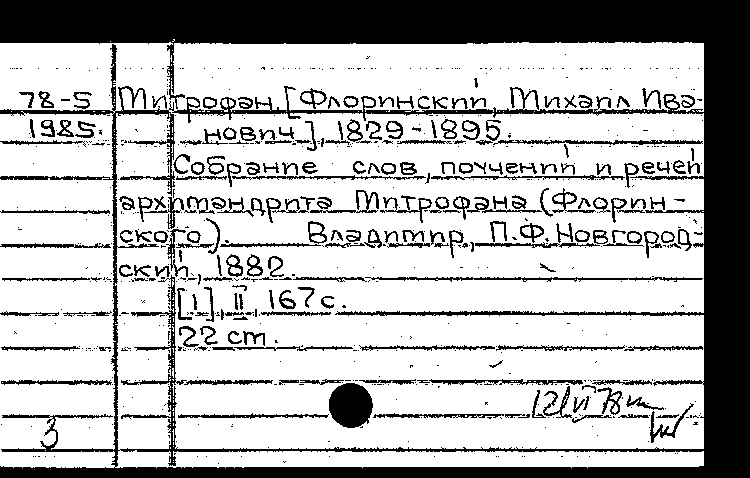 78-5 Митрофан. [Флоринский, Михаил Ива-
1985. нович], 1829-1895.
Собрание слов, поучений и речей
архимандрита Митрофана (Флорин-
ского). Владимир, П.Ф. Новгород-
ский, 1882.
[1], II, 167 с.
22 cm.
12/VI 78
3